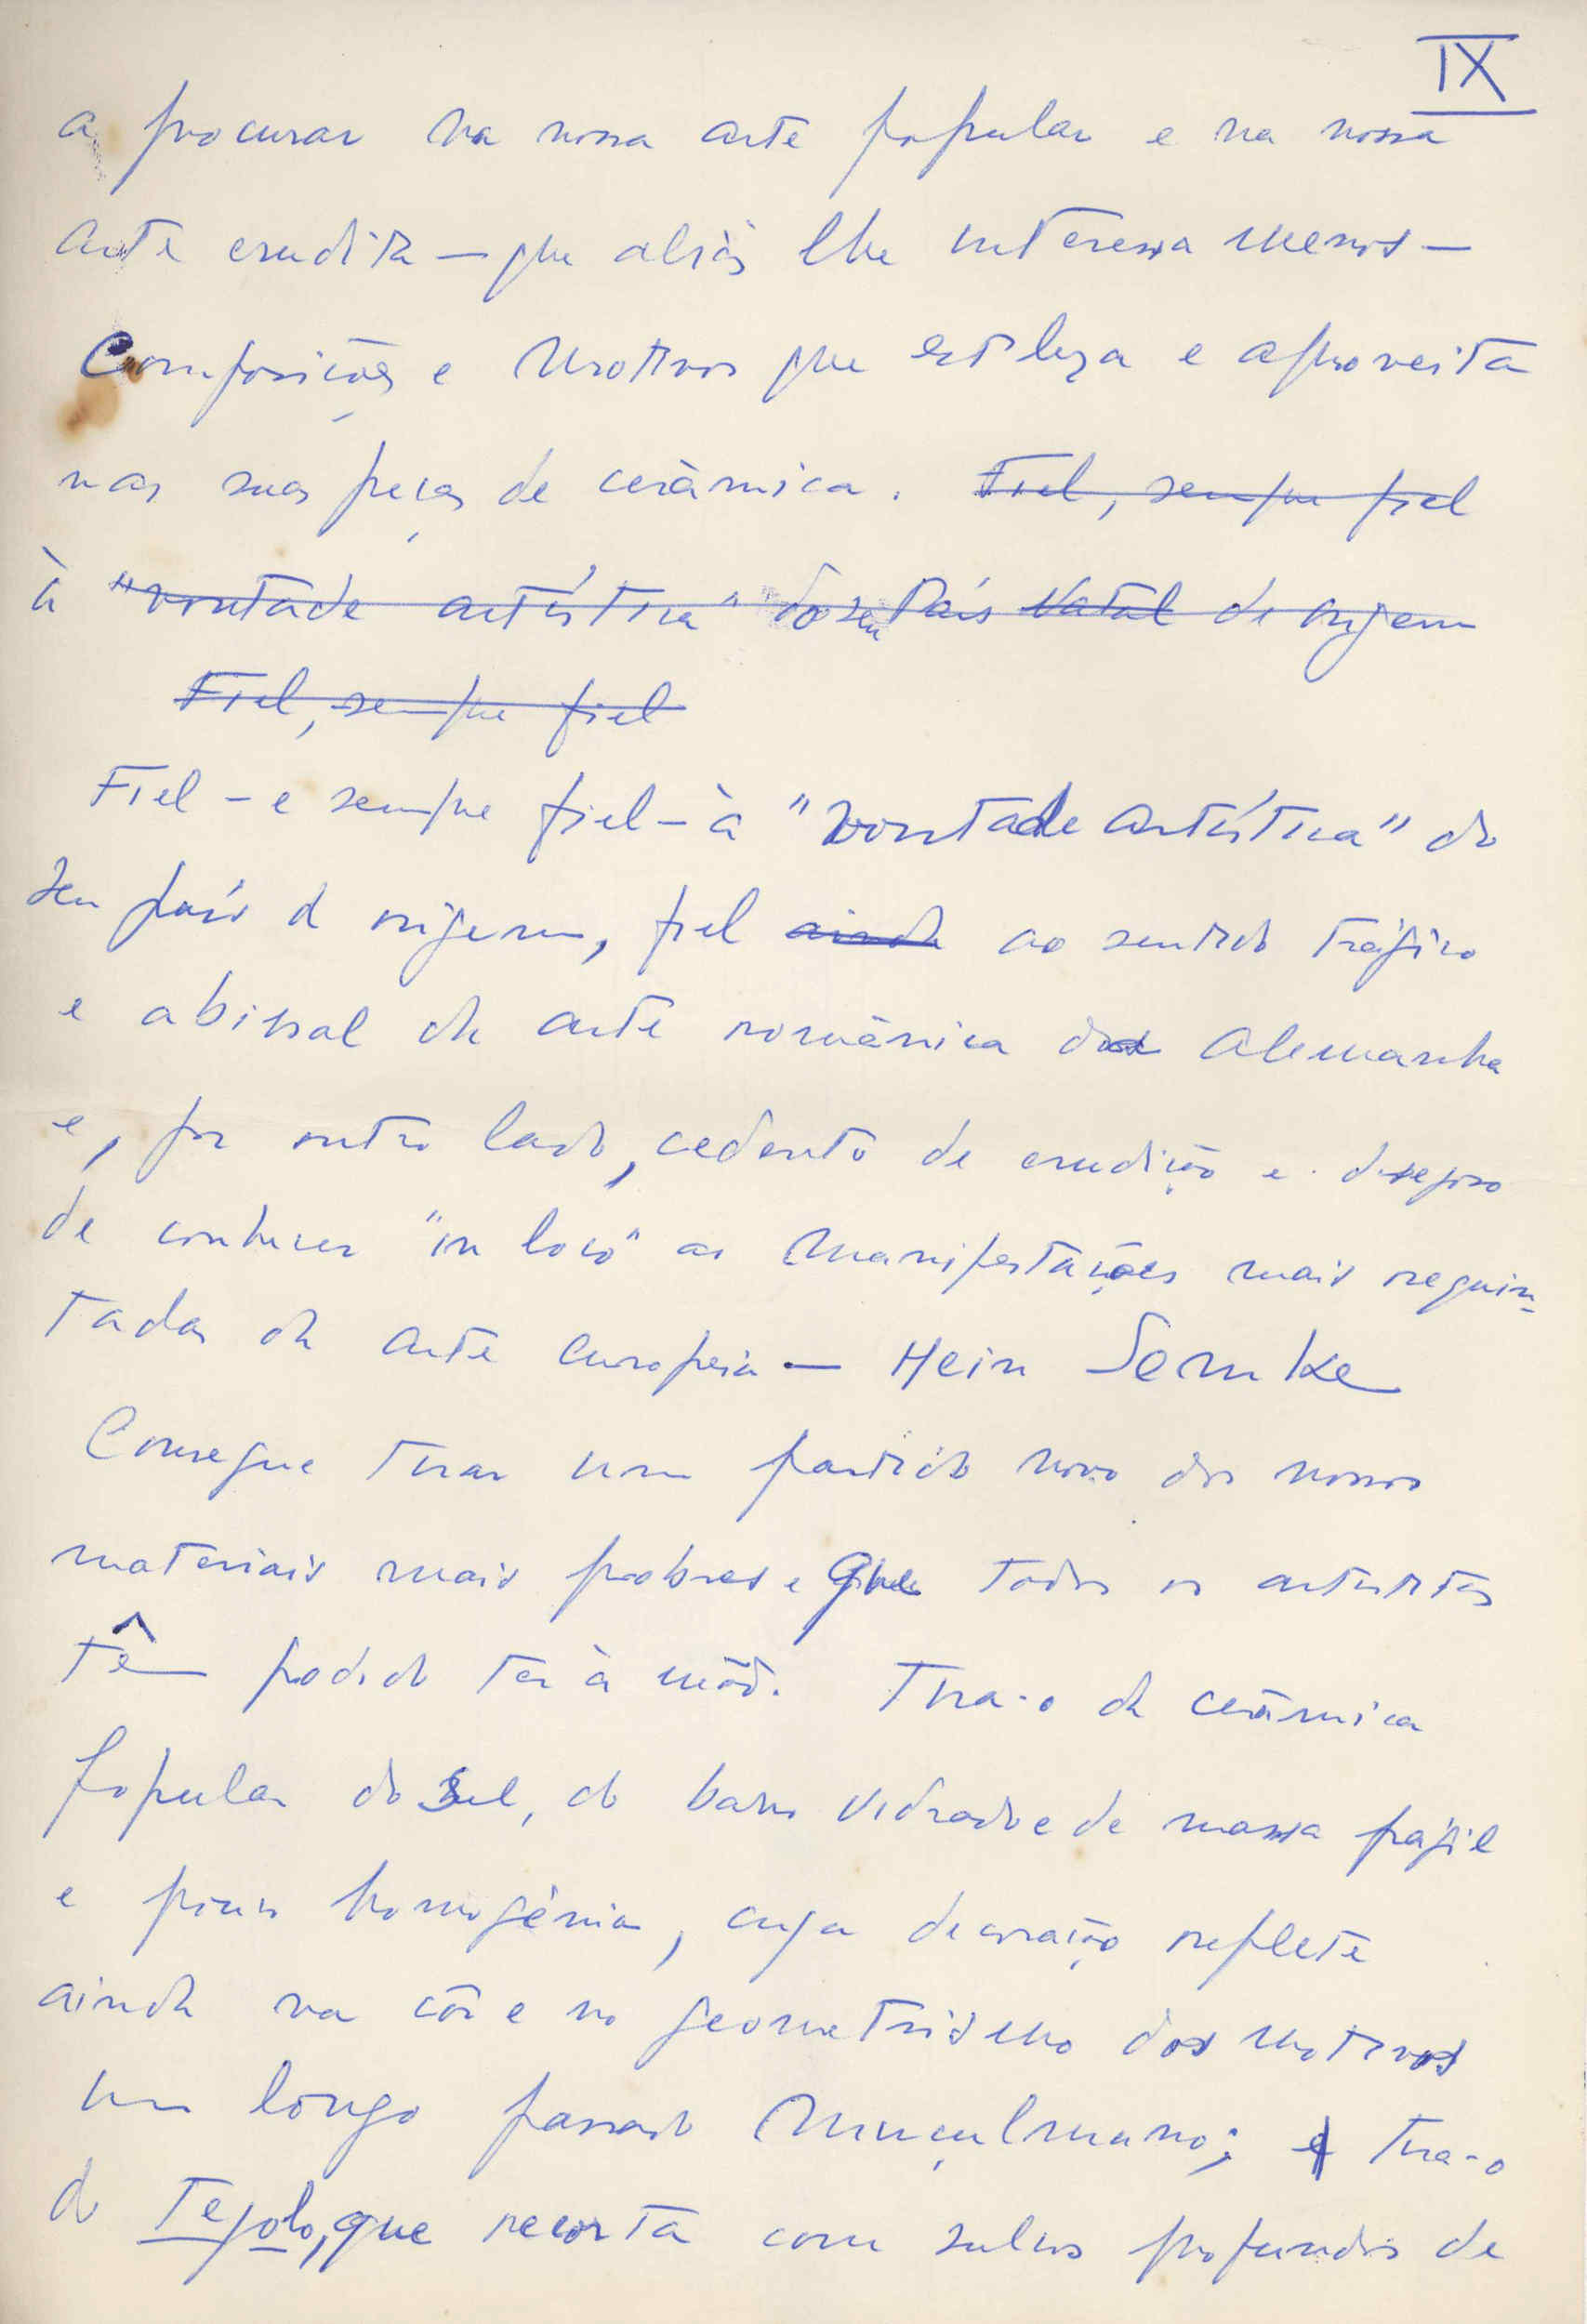 IX
a procurar na nossa arte popular e na nossa
arte erudita — que aliás lhe interessa menos —
Composições e Motivos que estiliza e aproveita
nas suas peças de cerâmica. Fiel, sempre fiel
à "vontade artística" do seu País Natal de origem
Fiel, sempre fiel
Fiel – e sempre fiel – à "vontade artística" do
seu país de origem, fiel ainda ao sentido trágico
e abissal da arte românica da Alemanha
e, por outro lado, cedento de erudição e desejoso
de conhecer "in loco" as Manifestações mais requin-
tadas da arte europeia — Hein Semke
Consegue tirar um partido novo dos nossos
materiais mais pobres e que todos os artistas
têm podido ter à mão. Tira-o da cerâmica
popular do Sul, do barro vidrado e de massa frágil
e pouco homogénia, cuja decoração reflete
ainda na côr e no geometrismo dos motivos
um longo passado Muçulmano; e tira-o
do Tejolo, que recorta com sulcos profundos de